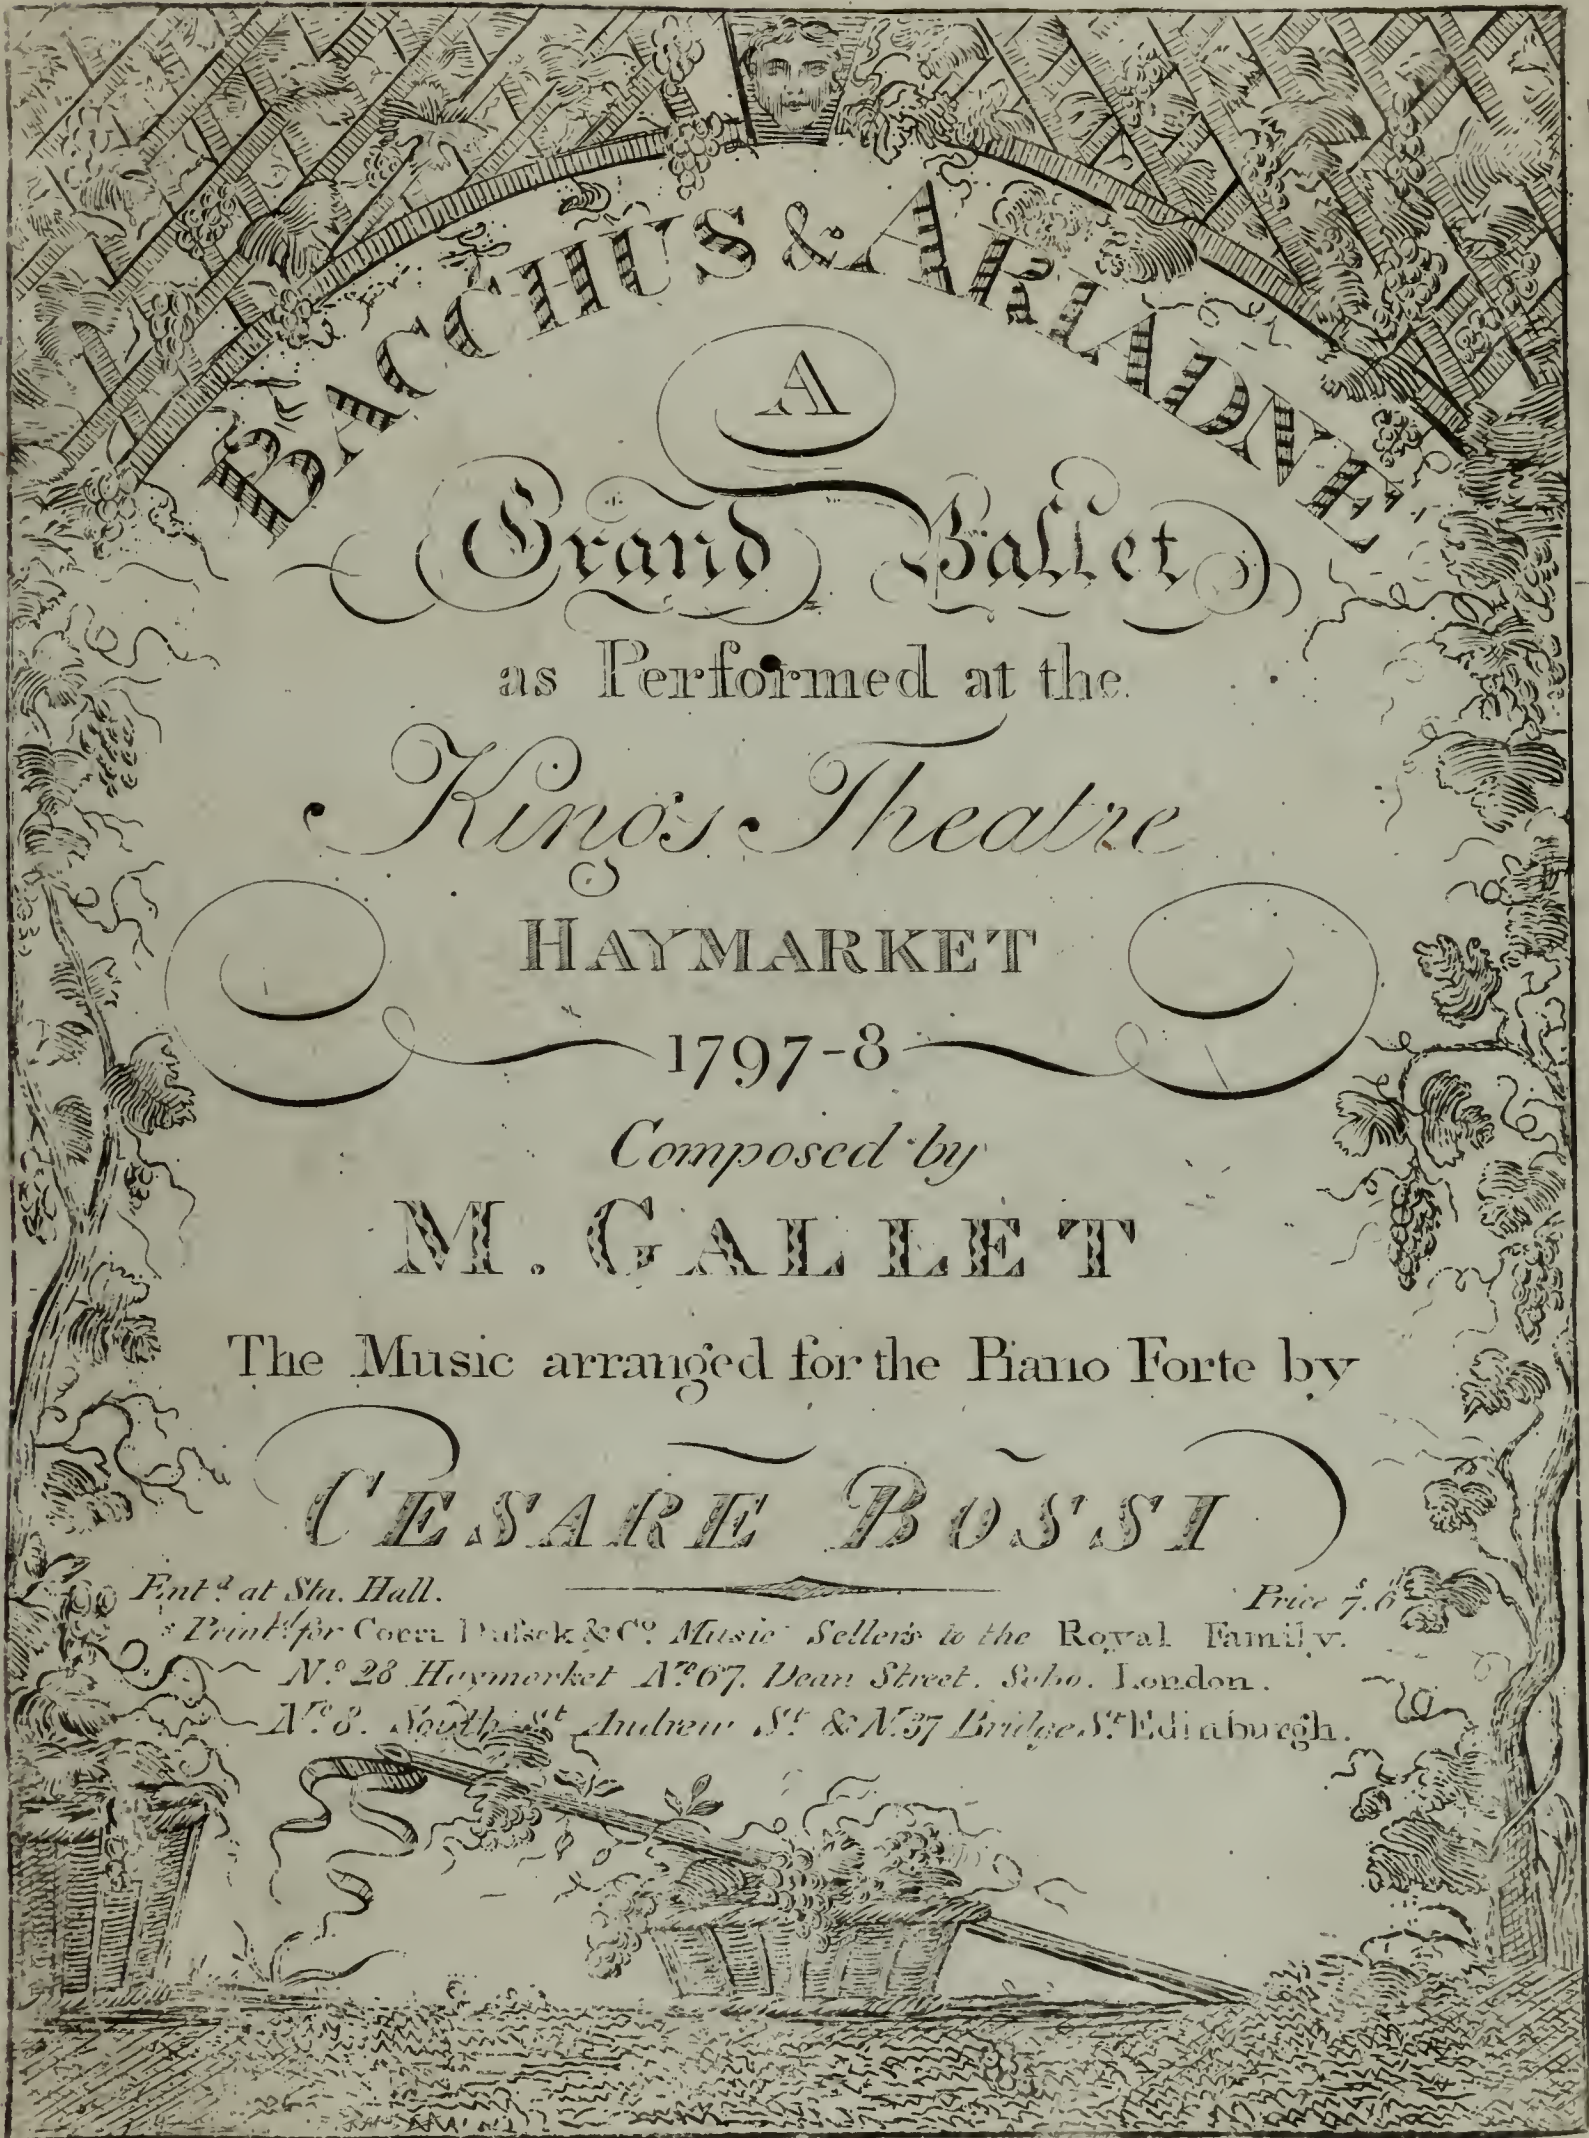 BACCHUS & ARIADNE
A
Grand Ballet
as Performed at the
King's Theatre
HAYMARKET
1797-8
Composed by
M. GALLET
The Music arranged for the Piano Forte by
CESARE BOSSI
Entd. at Sta. Hall. Price 7s. 6
Printd. for Corri Dussek & Co. Music Sellers to the Royal Family.
No. 28 Haymarket No. 67. Dean Street. Soho. London.
No. 8. South St. Andrew St. & N. 37 Bridge St. Edinburgh.